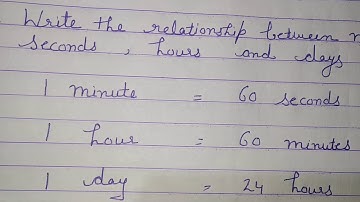 Write the relationship between
seconds, hours and days
1 minute = 60 seconds
1 hour = 60 minutes
1 day = 24 hours